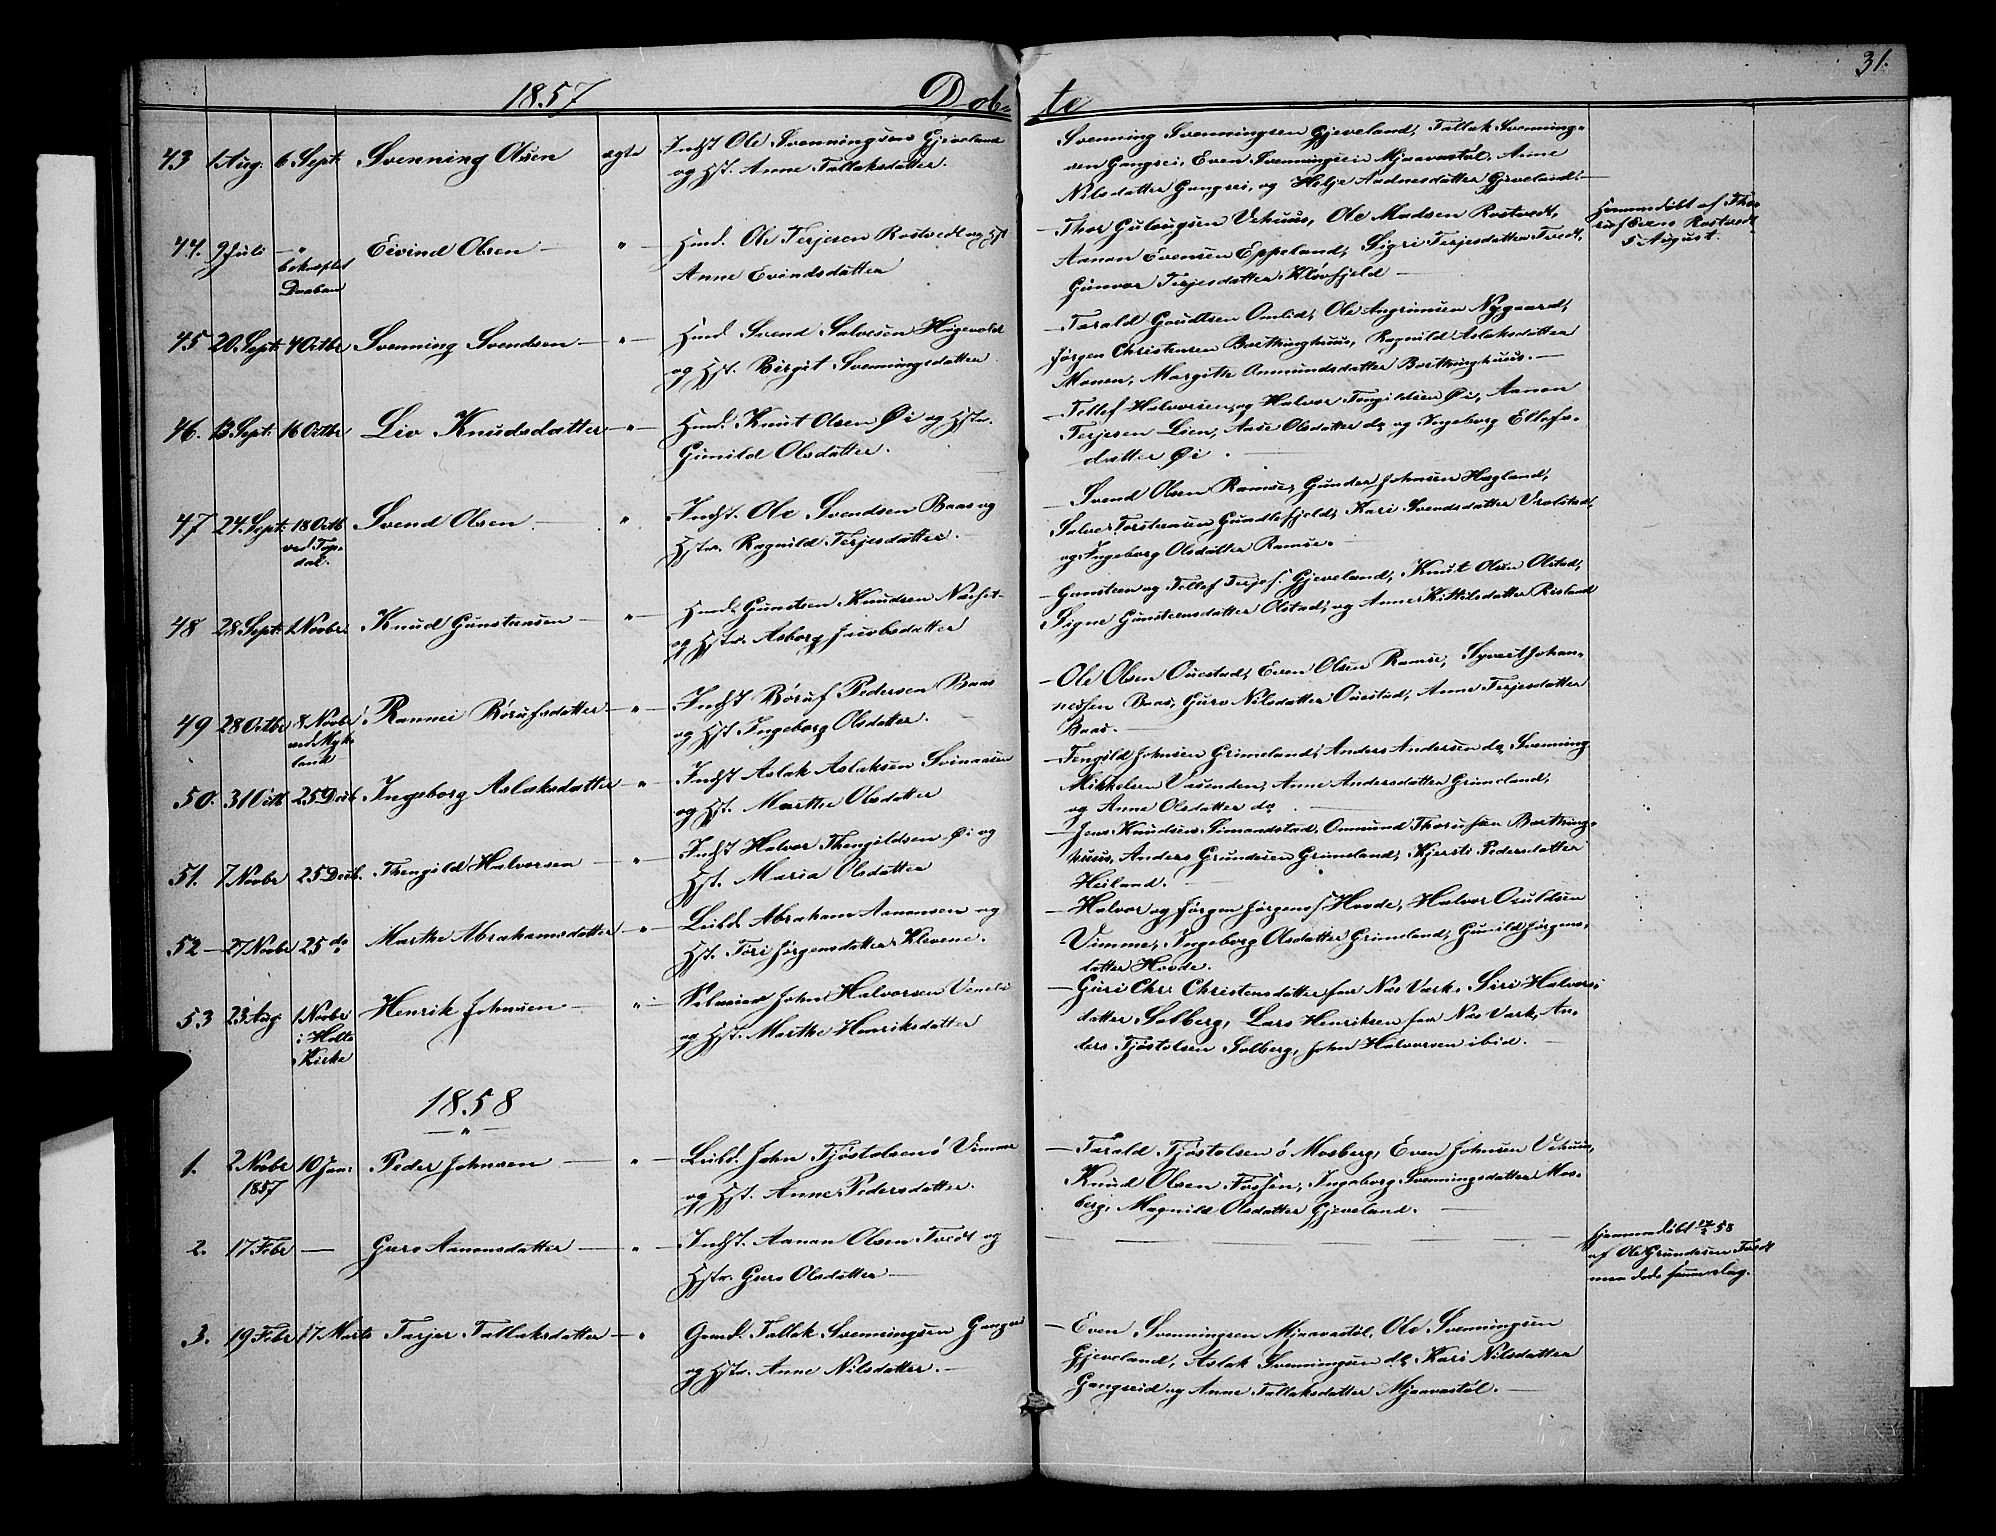 31.
1857 Døb- te
43 1 Aug. 6 Sept: Svenning Olsen ægte Indst Ole Svenningsen Gjeveland
og Hst. Anne Tallaksdatter.
Svenning Svenningsen Gjeveland, Tallak Svenning-
sen Gangsei, Even Svenningsen Mjaavastøl, Anne
Nilsdatter Gangsei, og Helje Aadnesdatter Gjeveland.
44. 9 Juli — " Eivind Olsen — " — Hmd. Ole Terjesen Rostvedt og Hst
bekræftet
Anne Evindsdatter
— Thor Gulaugsen Vehuus, Ole Madsen Rostvedt,
Aanon Evensen Eppeland, Sigri Terjesdatter Tvedt,
Gunvor Terjesdatter Kløvfjeld —
Hjemmedøbt af Tho-
ruf Evens Rostvedt
5 August.
45 20 Sept: 4 Octbr Svenning Svendsen — " — Hmd. Svend Salvesen Høgevold
og Hst. Birgit Svenningsdatter
— Tarald Goudtsen Omlid, Ole Angrimsen Nygaard,
Jørgen Christensen Borthinghuus, Ragnild Aslaksdatter
Monen, Margithe Onmundsdatter Borthinghuus. —
46. 13 Sept: 16 Octbr Liv Knudsdatter — " — Hmd. Knut Olsen Øi og Hstr.
Gunild Olsdatter.
— Tellef Halvorsen og Halvor Tengildsen Øi, Aanon
Terjesen Lien, Aase Olsdatter do og Ingeborg Ellefs-
datter Øi.
47 24 Sept: 18 Octb Svend Olsen — " — Indst. Ole Svendsen Baas og
ved Top-
dal.
Hstr. Ragnild Terjesdatter. —
— Svend Olsen Ramse, Gunder Johnsen Hagland,
Salve Torstensen Gundlefjeld, Kari Svendsdatter Vrolstad,
og Ingeborg Olsdatter Ramse.
48 28 Sept: 1 Novbr. Knud Gunstensen — " — Hmd. Gunsten Knudsen Næset
og Hstr. Asborg Jacobsdatter
— Gunsteen og Tellef Terjes. Gjeveland, Knut Olsen Olstad,
Signe Gunsteensdatter Olstad, og Anne Kittilsdatter Risland
49 28 Octbr 8 Novbr Rannei Rørufsdatter — " — Indst Røruf Pedersen Baas
ved Myk-
land
og Hst Ingeborg Olsdatter.
— Ole Olsen Ouestad, Even Olsen Ramse, Syvert Johan-
nessen Baas, Guro Nilsdatter Ouestad, Anne Terjesdatter
Baas. —
50. 31 Octb 25 Decb. Ingeborg Aslaksdatter " Indst Aslak Aslaksen Svinaasen
og Hst. Marthe Olsdatter
— Tengild Johnsen Grimeland, Anders Andersen do, Svenning
Mikkelsen Vasenden, Anne Andersdatter Grimeland,
og Anne Olsdatter do.
51. 7 Novbr 25 Decb. Thengild Halvorsen — " — Indst Halvor Thengildsen Øi og
Hst. Maria Olsdatter
— Jens Knudsen Simonstad, Onmund Thorufsen Borthing-
huus, Anders Grundesen Grimeland, Kjersti Pedersdatter
Heiland. —
52 — 27 Novbr 25 do Marthe Abrahamsdatter — " — Leibd. Abraham Aanonsen og
Hst. Tori Jørgensdatter Klevene.
— Halvor og Jørgen Jørgens. Hovde, Halvor Osuldsen
Vimme, Ingeborg Olsdatter Grimeland, Gunild Jørgens-
datter Hovde.
53 23 Aug 1 Novbr Henrik Johnsen — " — Selveier John Halvorsen
i Holts
Kirke
og Hst. Marthe Henriksdatter
— Guri Chr. Christensdatter fra Nes Værk, Siri Halvors-
datter Solberg, Lars Henriksen fra Nes Værk, An-
ders Tjøstolsen Solberg, John Halvorsen ibid. —
1858
— " —
1. 2 Novbr 10 Jan: Peder Johnsen — " — Leibd. John Tjøstolsen Vimme
1857
og Hst. Anne Pedersdatter.
— Tarald Tjøstolsen Mosberg, Even Johnsen Vehuus,
Knud Olsen Fossen, Ingeborg Svenningsdatter Mos-
berg, Magnild Olsdatter Gjeveland. —
2. 17 Febr — Guro Aanonsdatter — " — Indst. Aanon Olsen Tvedt og
Hstr. Guro Olsdatter —
hjemmedøbt 17/2 58
af Ole Grundesen Tvedt
men døde samme dag.
3. 19 Febr 17 Marts Tarjer Tallaksdatter — " Gmd. Tallak Svenningsen Gangsei
og Hstr. Anne Nilsdatter. —
— Even Svenningsen Mjaavastøl, Ole Svenningsen
Gjeveland, Aslak Svenningsen do, Kari Nilsdatter
Gangseid og Anne Tallaksdatter Mjaavastøl. —